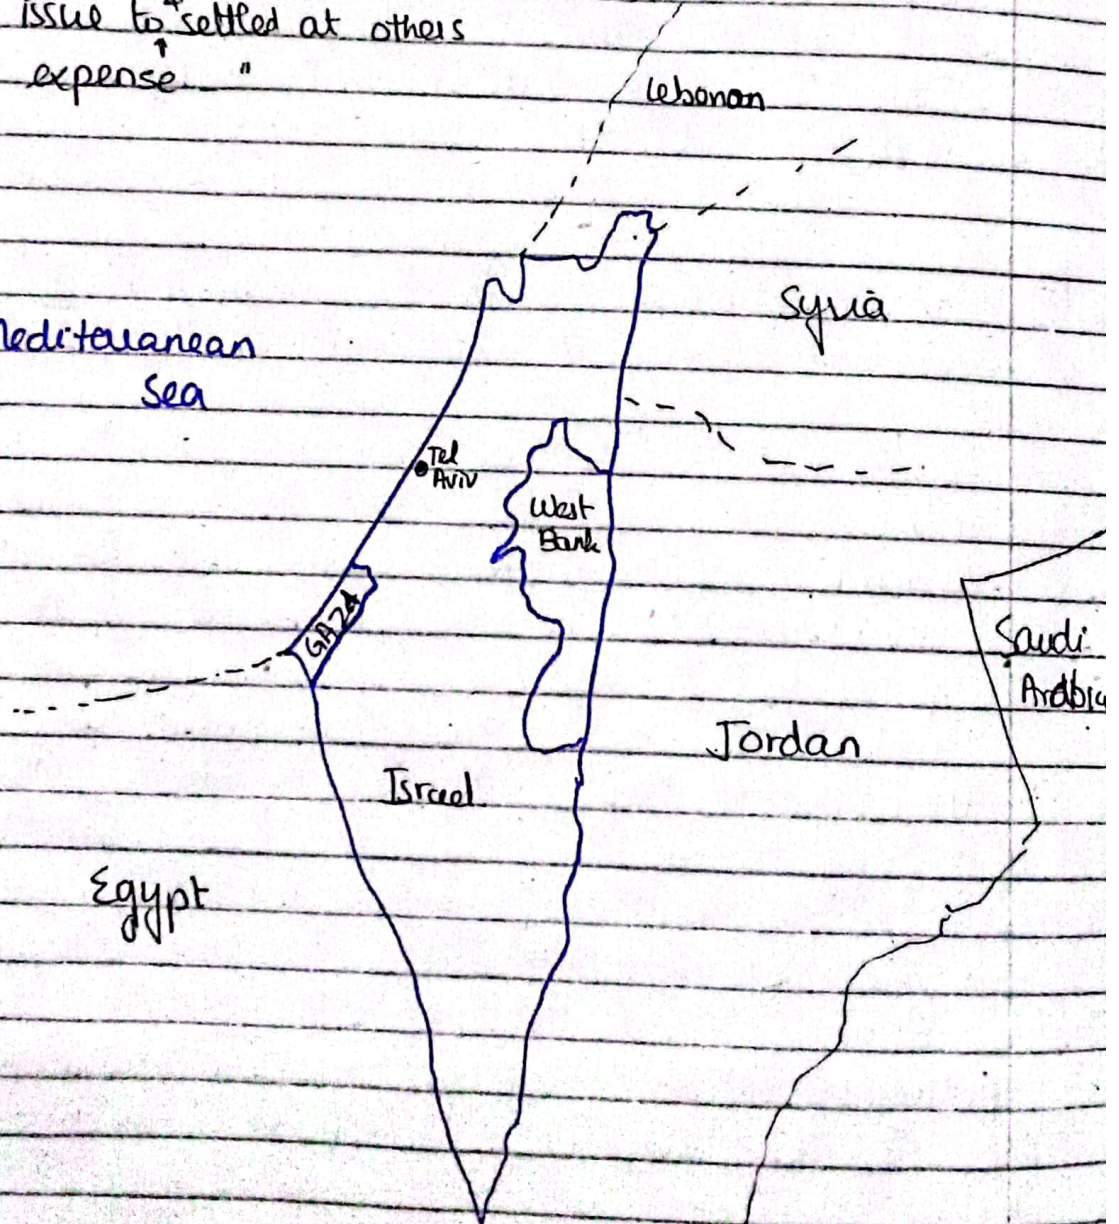 issue to settled at others
expense "
Lebanon
Syria
Mediterranean
Sea
Tel
Aviv
West
Bank
GAZA
Saudi
Arabia
Jordan
Israel
Egypt